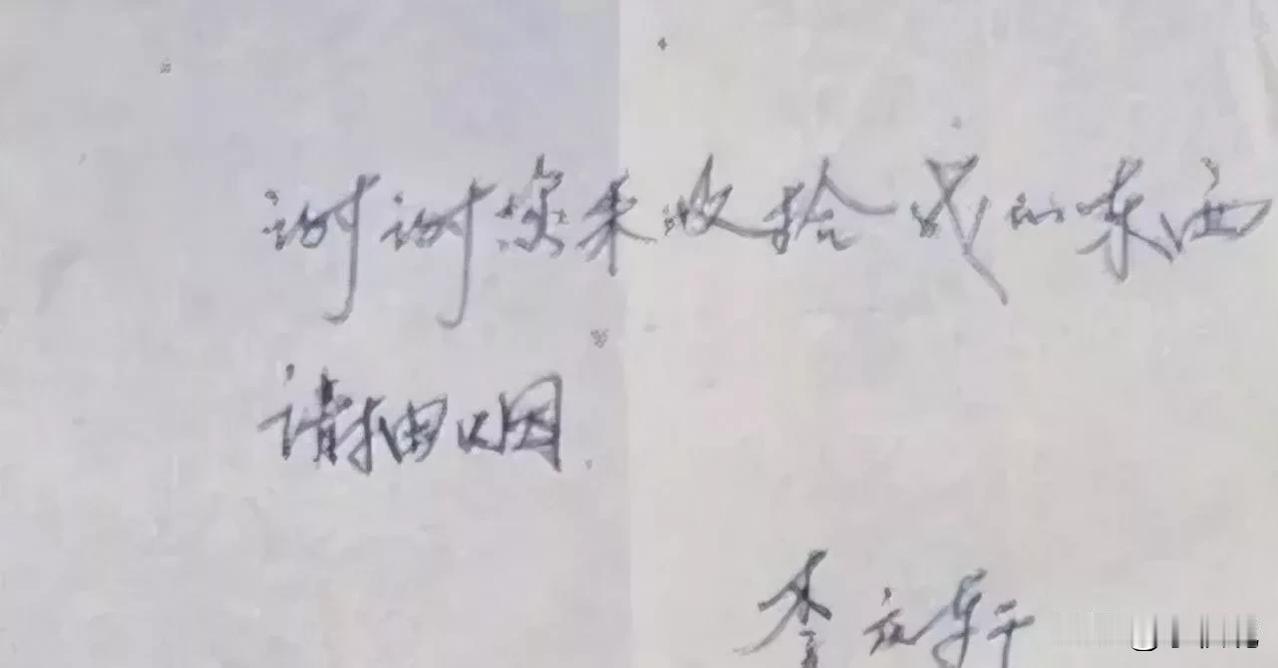 谢谢您来收拾我的东西
请抽烟.
李应轩